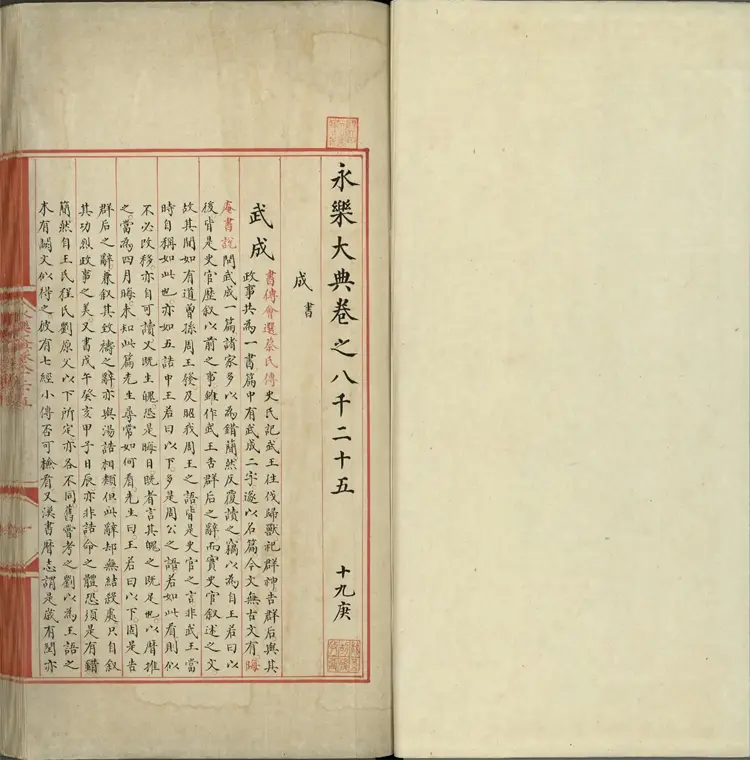 永樂大典卷之八千二十五 十九庚
成 書
武成 書傳會選蔡氏傳史氏記武王往伐歸獸祀群神告群后與其
政事共為一書篇中有武成二字遂以名篇今文無古文有晦
庵書說問武成一篇諸家多以為錯簡然反覆讀之竊以為自王若曰以
後皆是史官歷叙以前之事雖作武王告群后之辭而實史官叙述之文
故其間如有道曾孫周王發及昭我周王之語皆是史官之言非武王當
時自稱如此也亦如五誥中王若曰以下多是周公之語若如此看則似
不必改移亦自可讀又既生魄恐是晦日既者言其魄之既足也以曆推
之當為四月晦未知此篇先生尋常如何看先生曰王若曰以下固是告
群后之辭兼叙其致禱之辭亦與湯誥相類但此辭却無結殺處只自叙
其功烈政事之美又書戊午癸亥甲子日辰亦非誥命之體恐須是有錯
簡然自王氏程氏劉原父以下所定亦各不同舊嘗考之劉以為王語之
末有闕文似得之彼有七經小傳否可檢看又漢書曆志謂是歲有閏亦